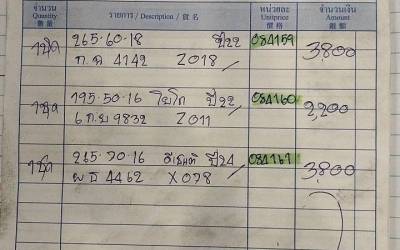 จำนวน รายการ / Description / 貨名 หน่วยละ จำนวนเงิน
Quantity Unitprice Amount
數量 價格 銀額
1ชุด 265-60-18 ปี22 084159 3,800
ก.ด 4142 2018
1ชุด 195-50-16 โยโก ปี22 084160 2,200
6กย 9832 2011
1ชุด 265-70-16 ปี24 084161 3,800
ผธ 4462 X078